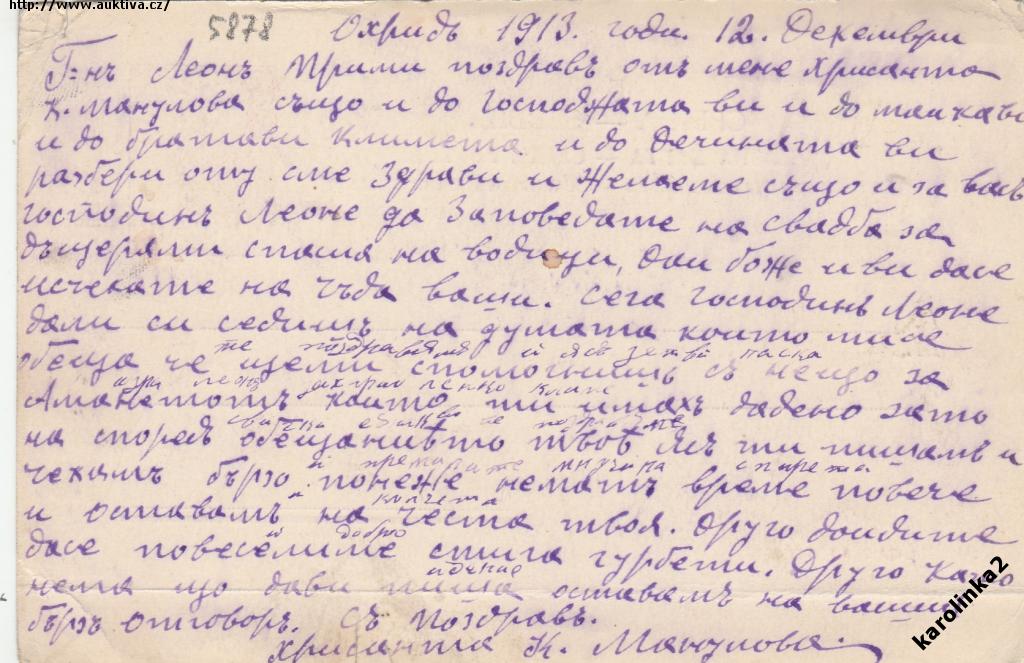 http://www.auktiva.cz/
5878
Охридъ 1913. годи. 12. Декември
Г=нъ Леонъ Прими поздравъ отъ мене Хрисанта
К. Манулова също и до господжата ви и до маика ви
и до братави Климета и до дечината ви
разбери оту сме Здрави и Желаеме също и за васъ
господинъ Леоне да Заповедате на свадба за
дъщерями спаша на водици, дай боже и ви дасе
исчекате на чъда ваши. Сега господинъ Леоне
дали си седишъ на думата които мисе
обеща че щеми спомогнишъ съ нещо за
Аманетотъ които ти имахъ дадено зато
на споредъ обещаниѣто твоѣ Ясъ ти пишамъ и
чекамъ бързо понеже нематъ време повече
и оставамъ на честа твоя. Друго доидите
дасе повеселиме стига гурбети. Друго
нема що дави пиша оставамъ на ваши
бързъ отговоръ. Съ поздравъ.
Хрисанта К. Манулова.
karolinka2